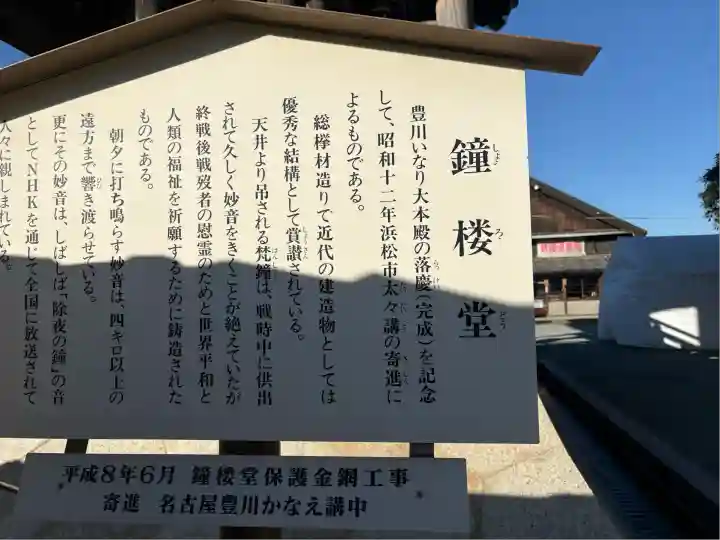 鐘楼堂
しょうろうどう
豊川いなり大本殿の落慶(完成)を記念
して、昭和十二年浜松市太々講の寄進に
よるものである。
総欅材造りで近代の建造物としては
優秀な結構として賞讃されている。
天井より吊される梵鐘は、戦時中に供出
されて久しく妙音をきくことが絶えていたが
終戦後戦歿者の慰霊のためと世界平和と
人類の福祉を祈願するために鋳造された
ものである。
朝夕に打ち鳴らす妙音は、四キロ以上の
遠方まで響き渡らせている。
更にその妙音は、しばしば「除夜の鐘」の音
としてNHKを通じて全国に放送されて
人々に親しまれている。
平成8年6月 鐘楼堂保護金網工事
寄進 名古屋豊川かなえ講中